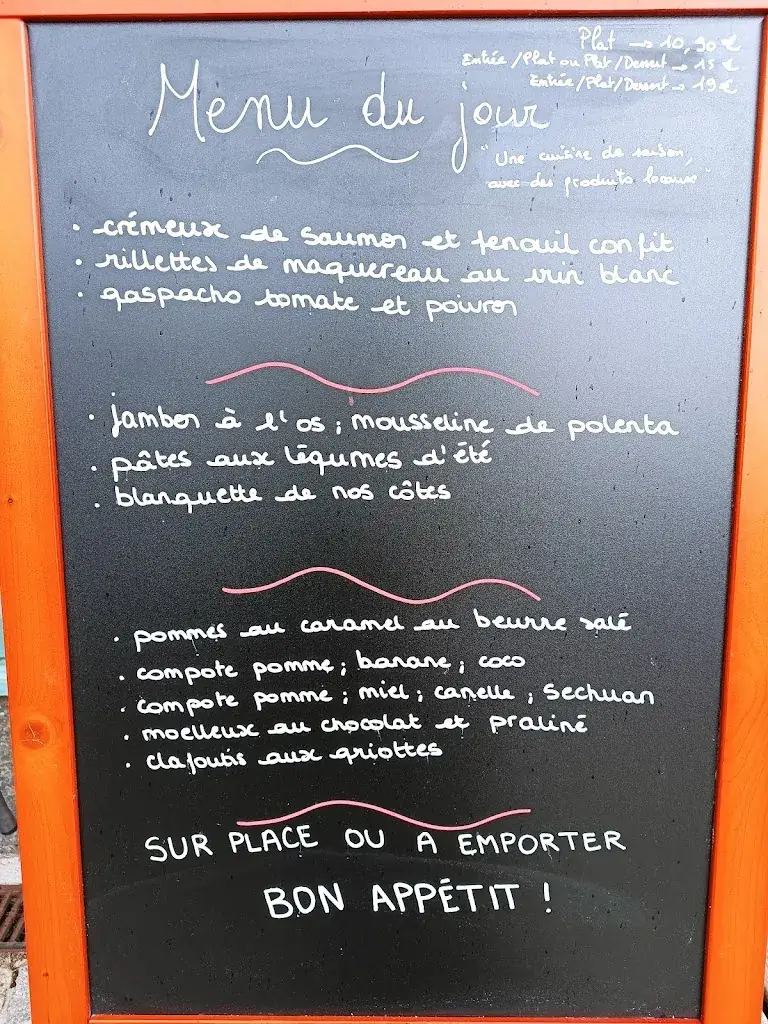 Plat → 10,90 €
Entrée/Plat ou Plat/Dessert → 15 €
Entrée/Plat/Dessert → 19 €
Menu du jour
"Une cuisine de saison,
avec des produits locaux"
• crémeux de saumon et fenouil confit
• rillettes de maquereau au vin blanc
• gaspacho tomate et poivron
• jambon à l'os ; mousseline de polenta
• pâtes aux légumes d'été
• blanquette de nos côtes
• pommes au caramel au beurre salé
• compote pomme ; banane ; coco
• compote pomme ; miel ; canelle ; sechuan
• moelleux au chocolat et praliné
• clafoutis aux griottes
SUR PLACE OU A EMPORTER
BON APPÉTIT !